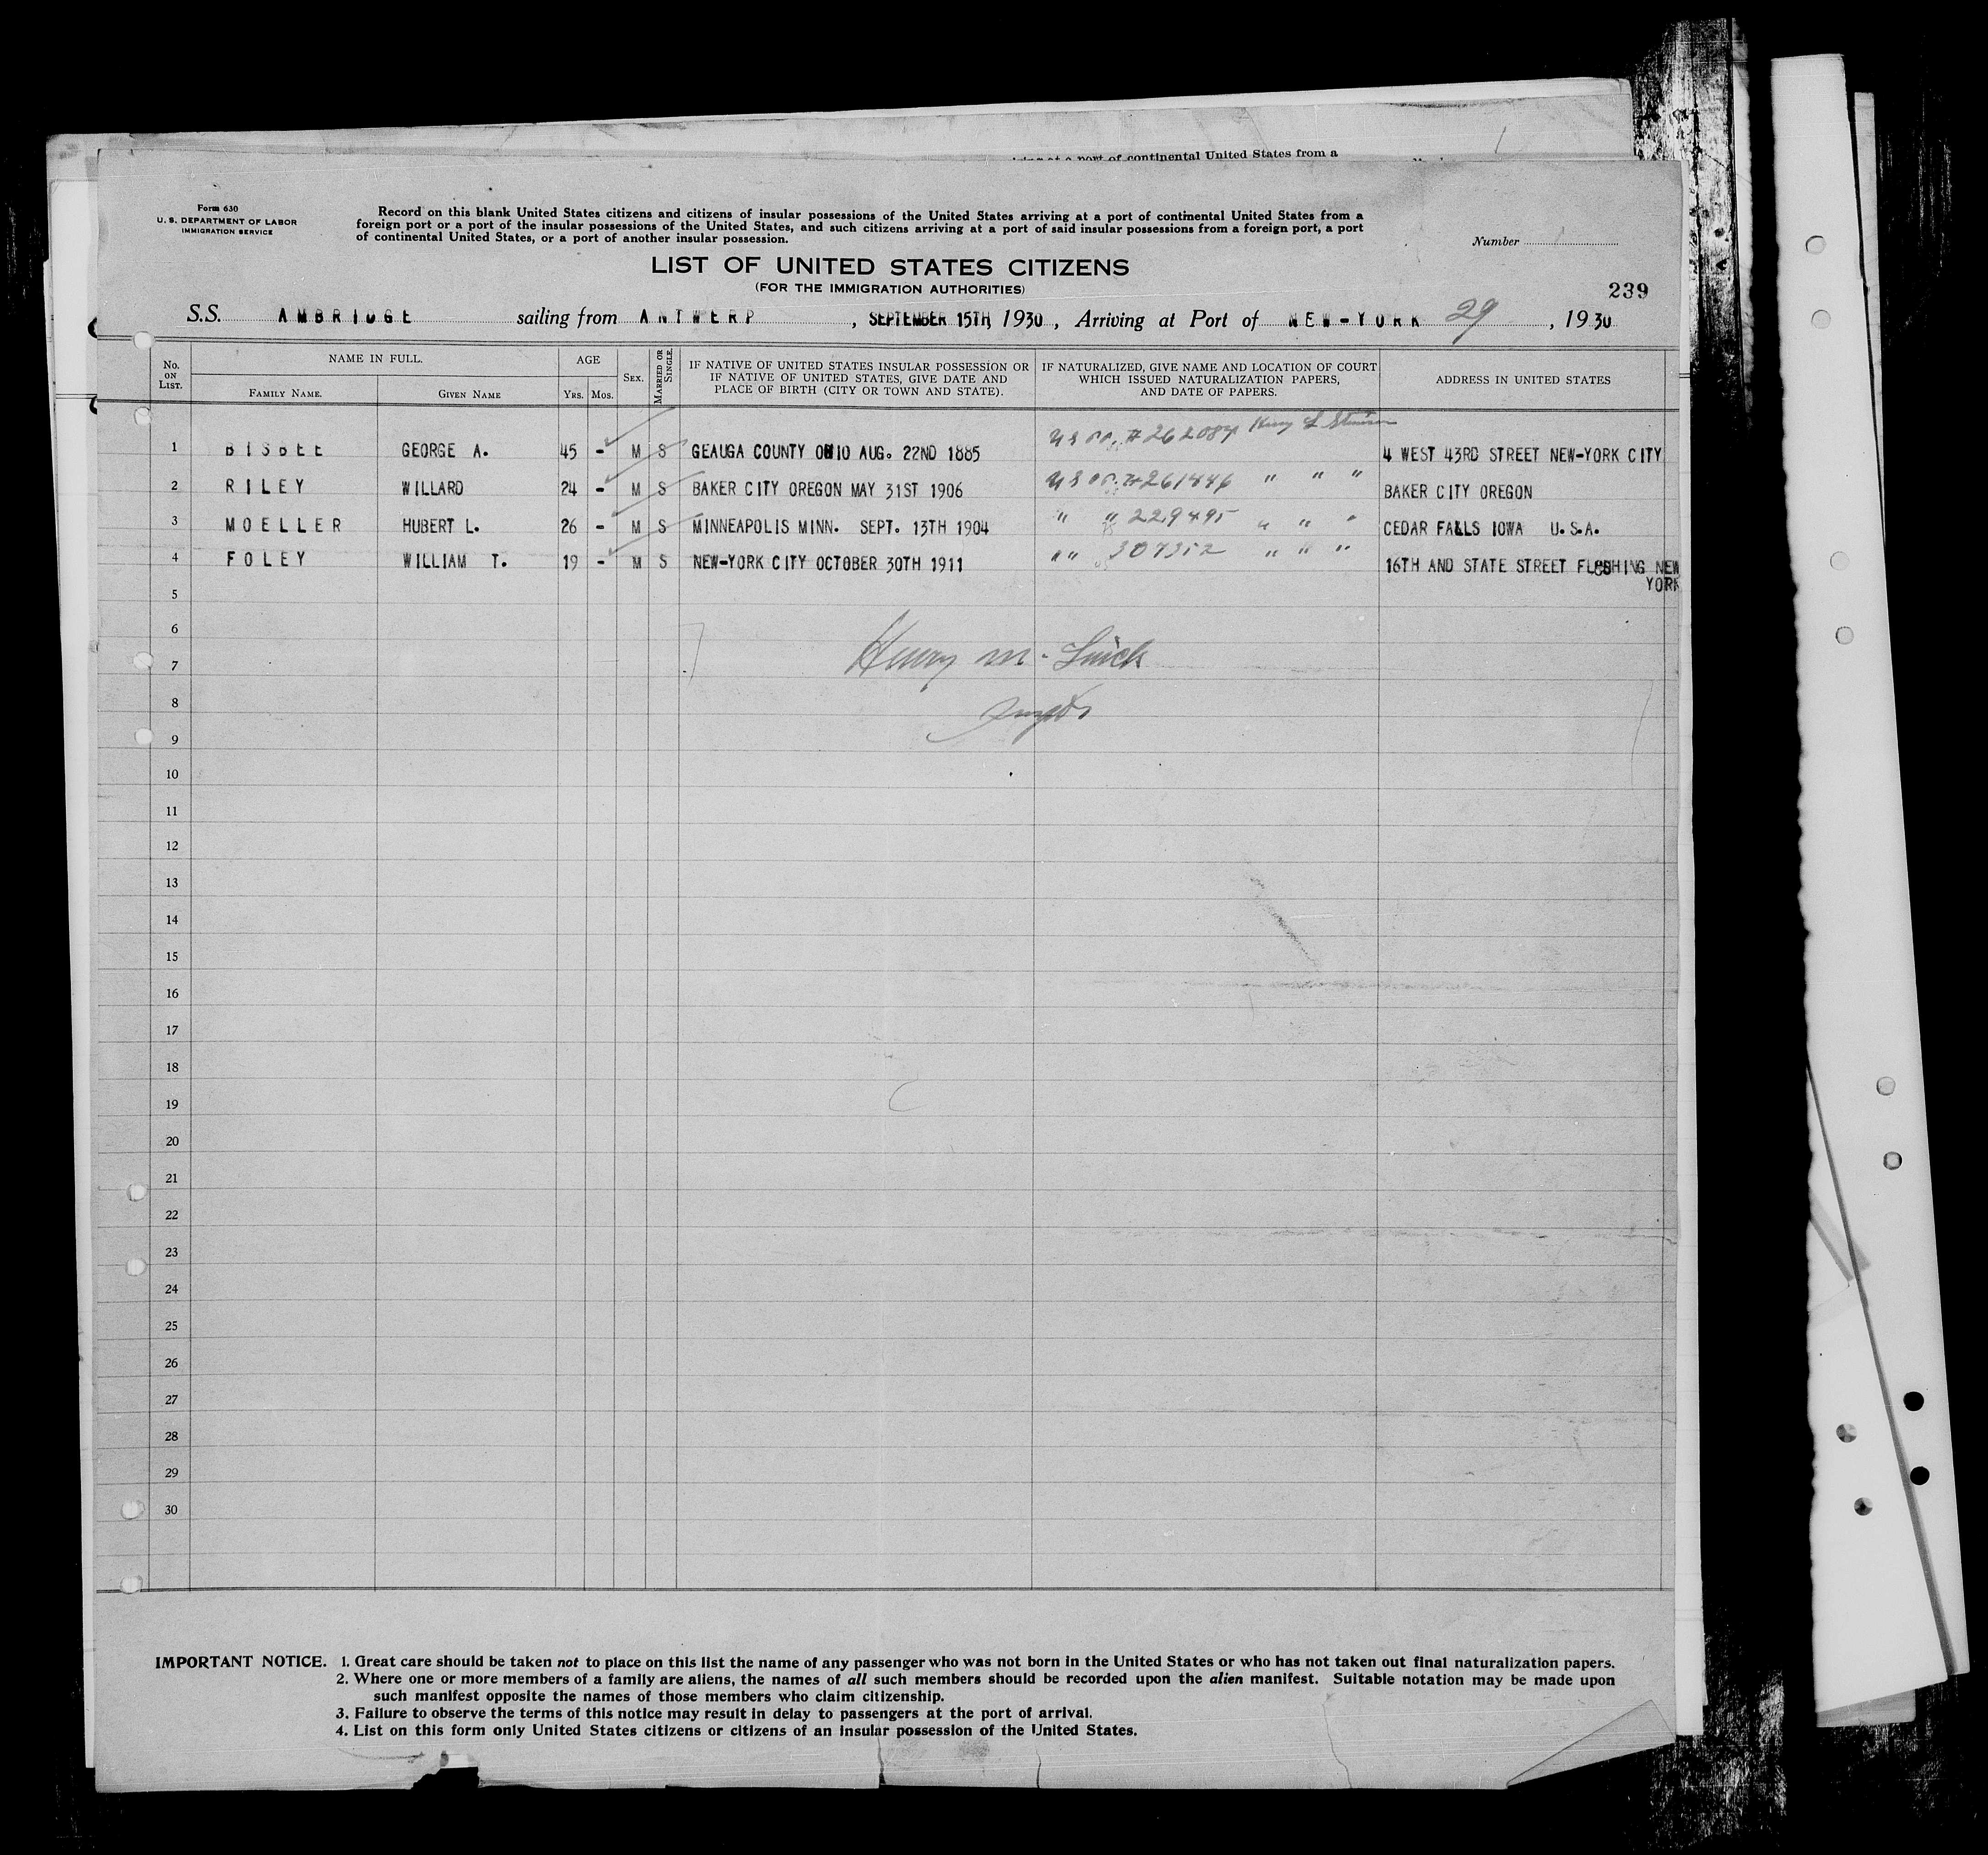 port of continental United States from a
Form 630
U. S. DEPARTMENT OF LABOR
IMMIGRATION SERVICE
Record on this blank United States citizens and citizens of insular possessions of the United States arriving at a port of continental United States from a
foreign port or a port of the insular possessions of the United States, and such citizens arriving at a port of said insular possessions from a foreign port, a port
of continental United States, or a port of another insular possession.
Number
LIST OF UNITED STATES CITIZENS
(FOR THE IMMIGRATION AUTHORITIES)
239
S.S. AMBRIDGE sailing from ANTWERP, SEPTEMBER 15TH, 1930, Arriving at Port of NEW-YORK 29, 1930
No. ON LIST.
NAME IN FULL.
FAMILY NAME.
GIVEN NAME
AGE
YRS. MOS.
SEX.
MARRIED OR SINGLE.
IF NATIVE OF UNITED STATES INSULAR POSSESSION OR
IF NATIVE OF UNITED STATES, GIVE DATE AND
PLACE OF BIRTH (CITY OR TOWN AND STATE).
IF NATURALIZED, GIVE NAME AND LOCATION OF COURT
WHICH ISSUED NATURALIZATION PAPERS,
AND DATE OF PAPERS.
ADDRESS IN UNITED STATES
1 BISBEE GEORGE A. 45 - M S GEAUGA COUNTY OHIO AUG. 22ND 1885 US PP. #262084 Henry L Stimson 4 WEST 43RD STREET NEW-YORK CITY
2 RILEY WILLARD 24 - M S BAKER CITY OREGON MAY 31ST 1906 US PP. #261446 " " " BAKER CITY OREGON
3 MOELLER HUBERT L. 26 - M S MINNEAPOLIS MINN. SEPT. 13TH 1904 " " 229495 " " " CEDAR FALLS IOWA U.S.A.
4 FOLEY WILLIAM T. 19 - M S NEW-YORK CITY OCTOBER 30TH 1911 " " 307352 " " " 16TH AND STATE STREET FLUSHING NEW
YORK
5
6
Henry M.
7
8
9
10
11
12
13
14
15
16
17
18
19
20
21
22
23
24
25
26
27
28
29
30
IMPORTANT NOTICE. 1. Great care should be taken not to place on this list the name of any passenger who was not born in the United States or who has not taken out final naturalization papers.
2. Where one or more members of a family are aliens, the names of all such members should be recorded upon the alien manifest. Suitable notation may be made upon
such manifest opposite the names of those members who claim citizenship.
3. Failure to observe the terms of this notice may result in delay to passengers at the port of arrival.
4. List on this form only United States citizens or citizens of an insular possession of the United States.